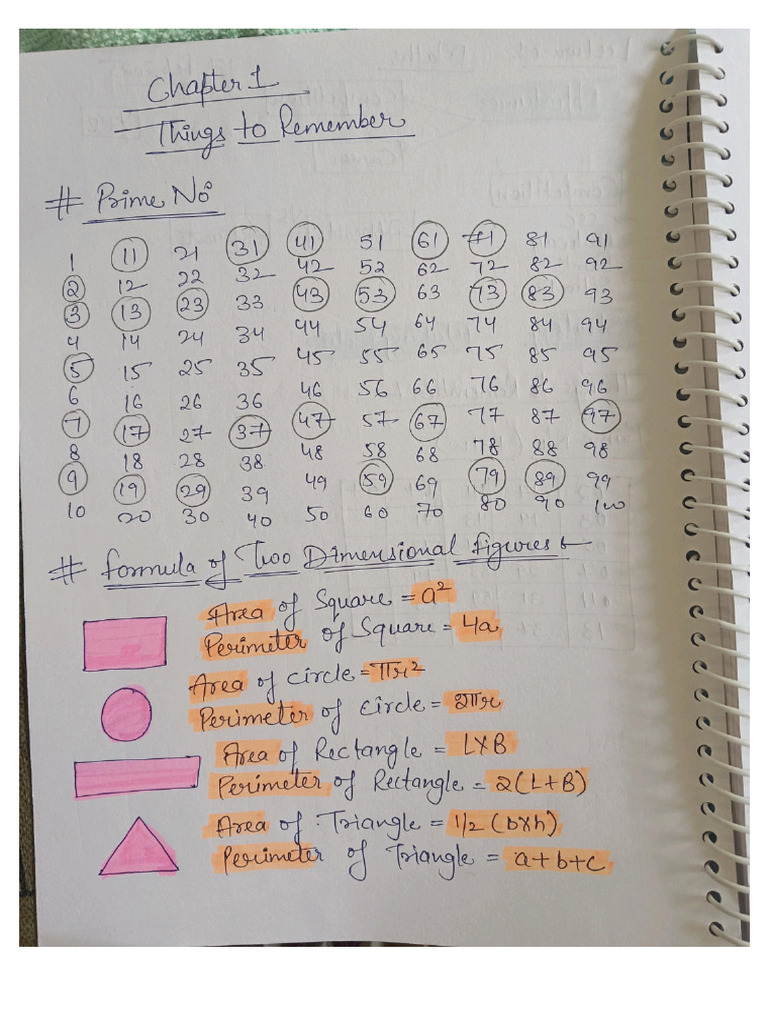 Chapter 1
Things to Remember
# Prime No
1 11 21 31 41 51 61 71 81 91
2 12 22 32 42 52 62 72 82 92
3 13 23 33 43 53 63 73 83 93
4 14 24 34 44 54 64 74 84 94
5 15 25 35 45 55 65 75 85 95
6 16 26 36 46 56 66 76 86 96
7 17 27 37 47 57 67 77 87 97
8 18 28 38 48 58 68 78 88 98
9 19 29 39 49 59 69 79 89 99
10 20 30 40 50 60 70 80 90 100
# Formula of Two Dimensional Figures
Area of Square = a²
Perimeter of Square = 4a
Area of circle = πr²
Perimeter of circle = 2πr
Area of Rectangle = L×B
Perimeter of Rectangle = 2(L+B)
Area of Triangle = 1/2 (b×h)
Perimeter of Triangle = a+b+c